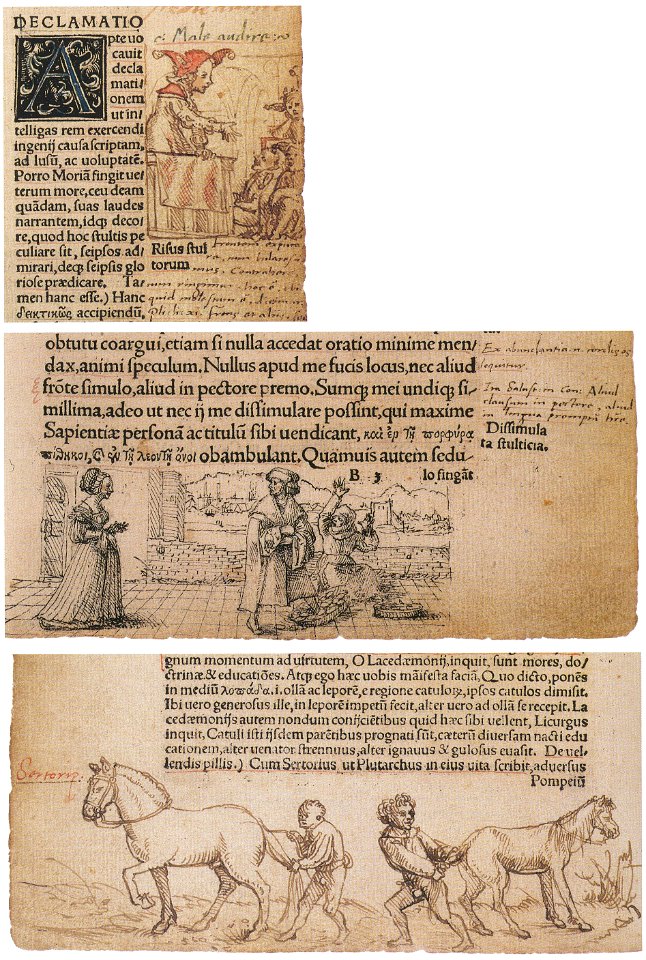 DECLAMATIO
Apte uo
cauit
decla
mati/
onem
ut in/
telligas rem exercendi
ingenij causa scriptam,
ad lusũ, ac uoluptatẽ.
Porro Moriã fingit ue/
terum more, ceu deam
quãdam, suas laudes
narrantem, idq; deco/
re, quod hoc stultis pe
culiare sit, seipsos ad/
mirari, deq; seipsis glo
riose prædicare. Ta/
men hanc esse.) Hanc
δεικτικῶς accipiendũ,
Male audire
Risus stul
torum
obtutu coargui, etiam si nulla accedat oratio minime men/
dax, animi speculum. Nullus apud me fucis locus, nec aliud
frõte simulo, aliud in pectore premo. Sumq; mei undiq; si/
millima, adeo ut nec ij me dissimulare possint, qui maxime
Sapientiæ personã ac titulũ sibi uendicant, καὶ ἐν τῇ πορφύρᾳ
πίθηκοι, καὶ ἐν τῇ λεοντῇ ὄνοι obambulant. Quamuis autem sedu/
B 3 lo fingãt
Ex abundantia cordis os
loquitur.
Aliud
clausum in pectore, aliud
in lingua promptũ
Dissimula
ta stulticia.
gnum momentum ad uirtutem, O Lacedæmonij, inquit, sunt mores, do/
ctrinæ & educatiões. Atq; ego hæc uobis mãifesta faciã, Quo dicto, ponẽs
in mediũ λοπάδα. i. ollã ac leporẽ, e regione catulorũ, ipsos catulos dimisit.
Ibi uero generosus ille, in leporẽ impetũ fecit, alter uero ad ollã se recepit. La
cedæmonijs autem nondum conijciẽtibus quid hæc sibi uellent, Licurgus
inquit, Catuli isti ijsdem parẽtibus prognati sũt, cæterũ diuersam nacti edu
cationem, alter uenator strennuus, alter ignauus & gulosus euasit. De uel/
lendis pillis.) Cum Sertorius, ut Plutarchus in eius uita scribit, aduersus
Pompeiũ
Sertorius